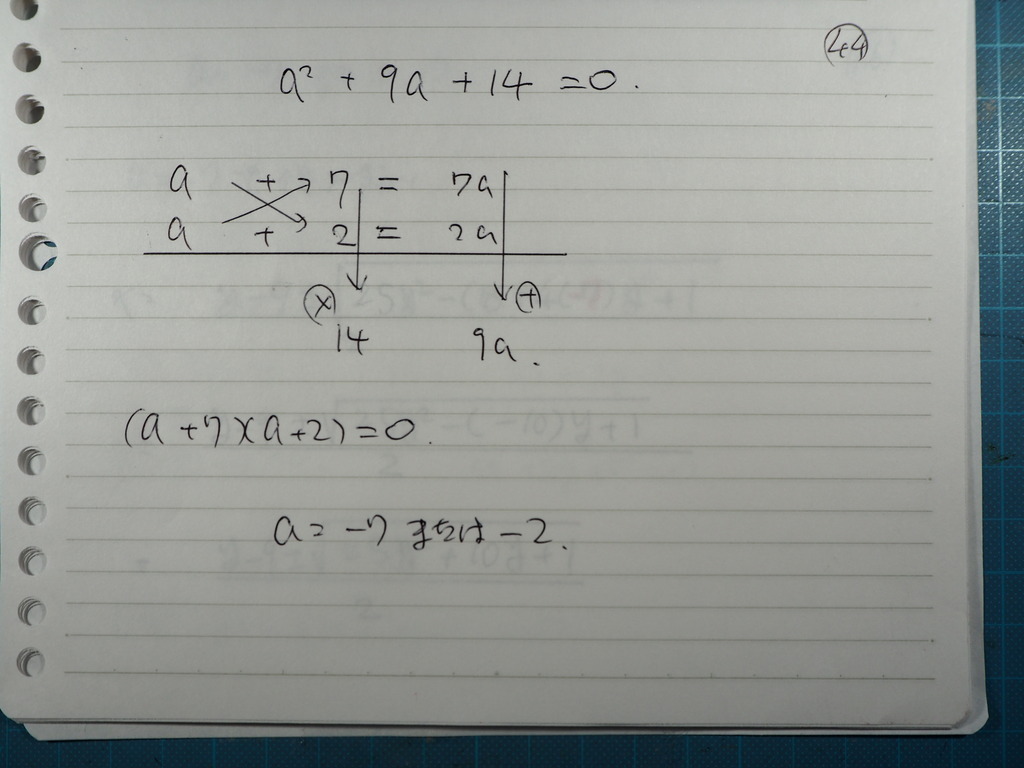 44
a² + 9a + 14 = 0.
a + 7 = 7a
a + 2 = 2a
× +
14 9a.
(a + 7)(a + 2) = 0.
a = -7 または -2.